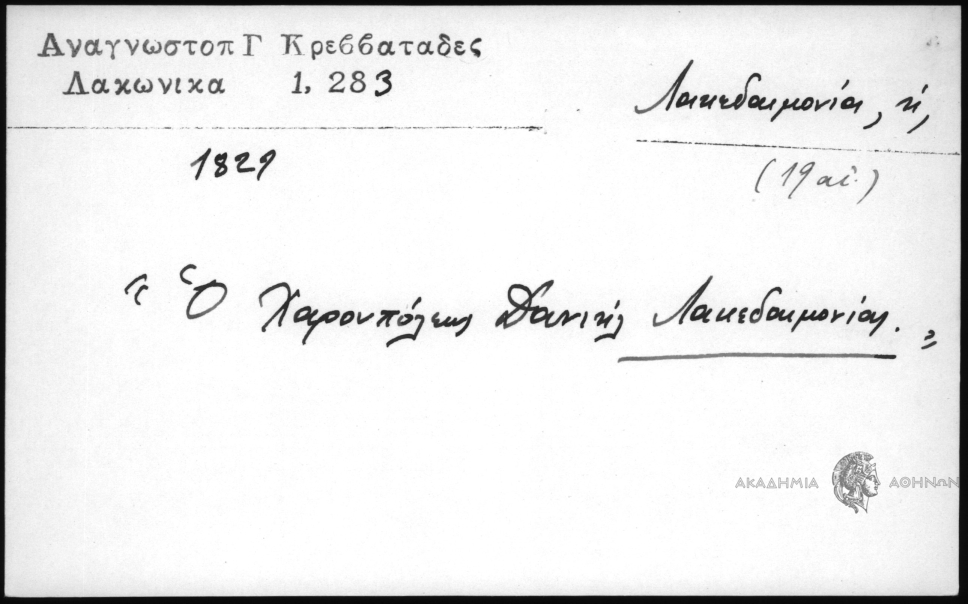 Αναγνωστοπ Γ Κρεββαταδες
Λακωνικα 1, 283
Λακεδαιμονία, ἡ,
1829
(19 αἰ.)
« Ὁ Χαρουπόλεως Δανιὴλ Λακεδαιμονίας. »
ΑΚΑΔΗΜΙΑ ΑΘΗΝΩΝ